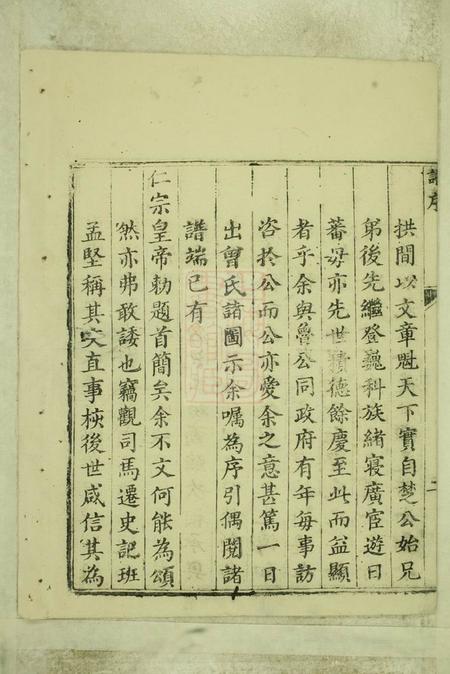 譜序
二
拱間以文章魁天下實自楚公始兄
弟後先繼登巍科族緒寖廣宦遊日
蕃毋亦先世積德餘慶至此而益顯
者乎余與魯公同政府有年每事訪
咨於公而公亦愛余之意甚篤一日
出曾氏諸圖示余囑為序引偶閱諸
譜端已有
仁宗皇帝勅題首簡矣余不文何能為頌
然亦弗敢諉也竊觀司馬遷史記班
孟堅稱其文直事核後世咸信其為